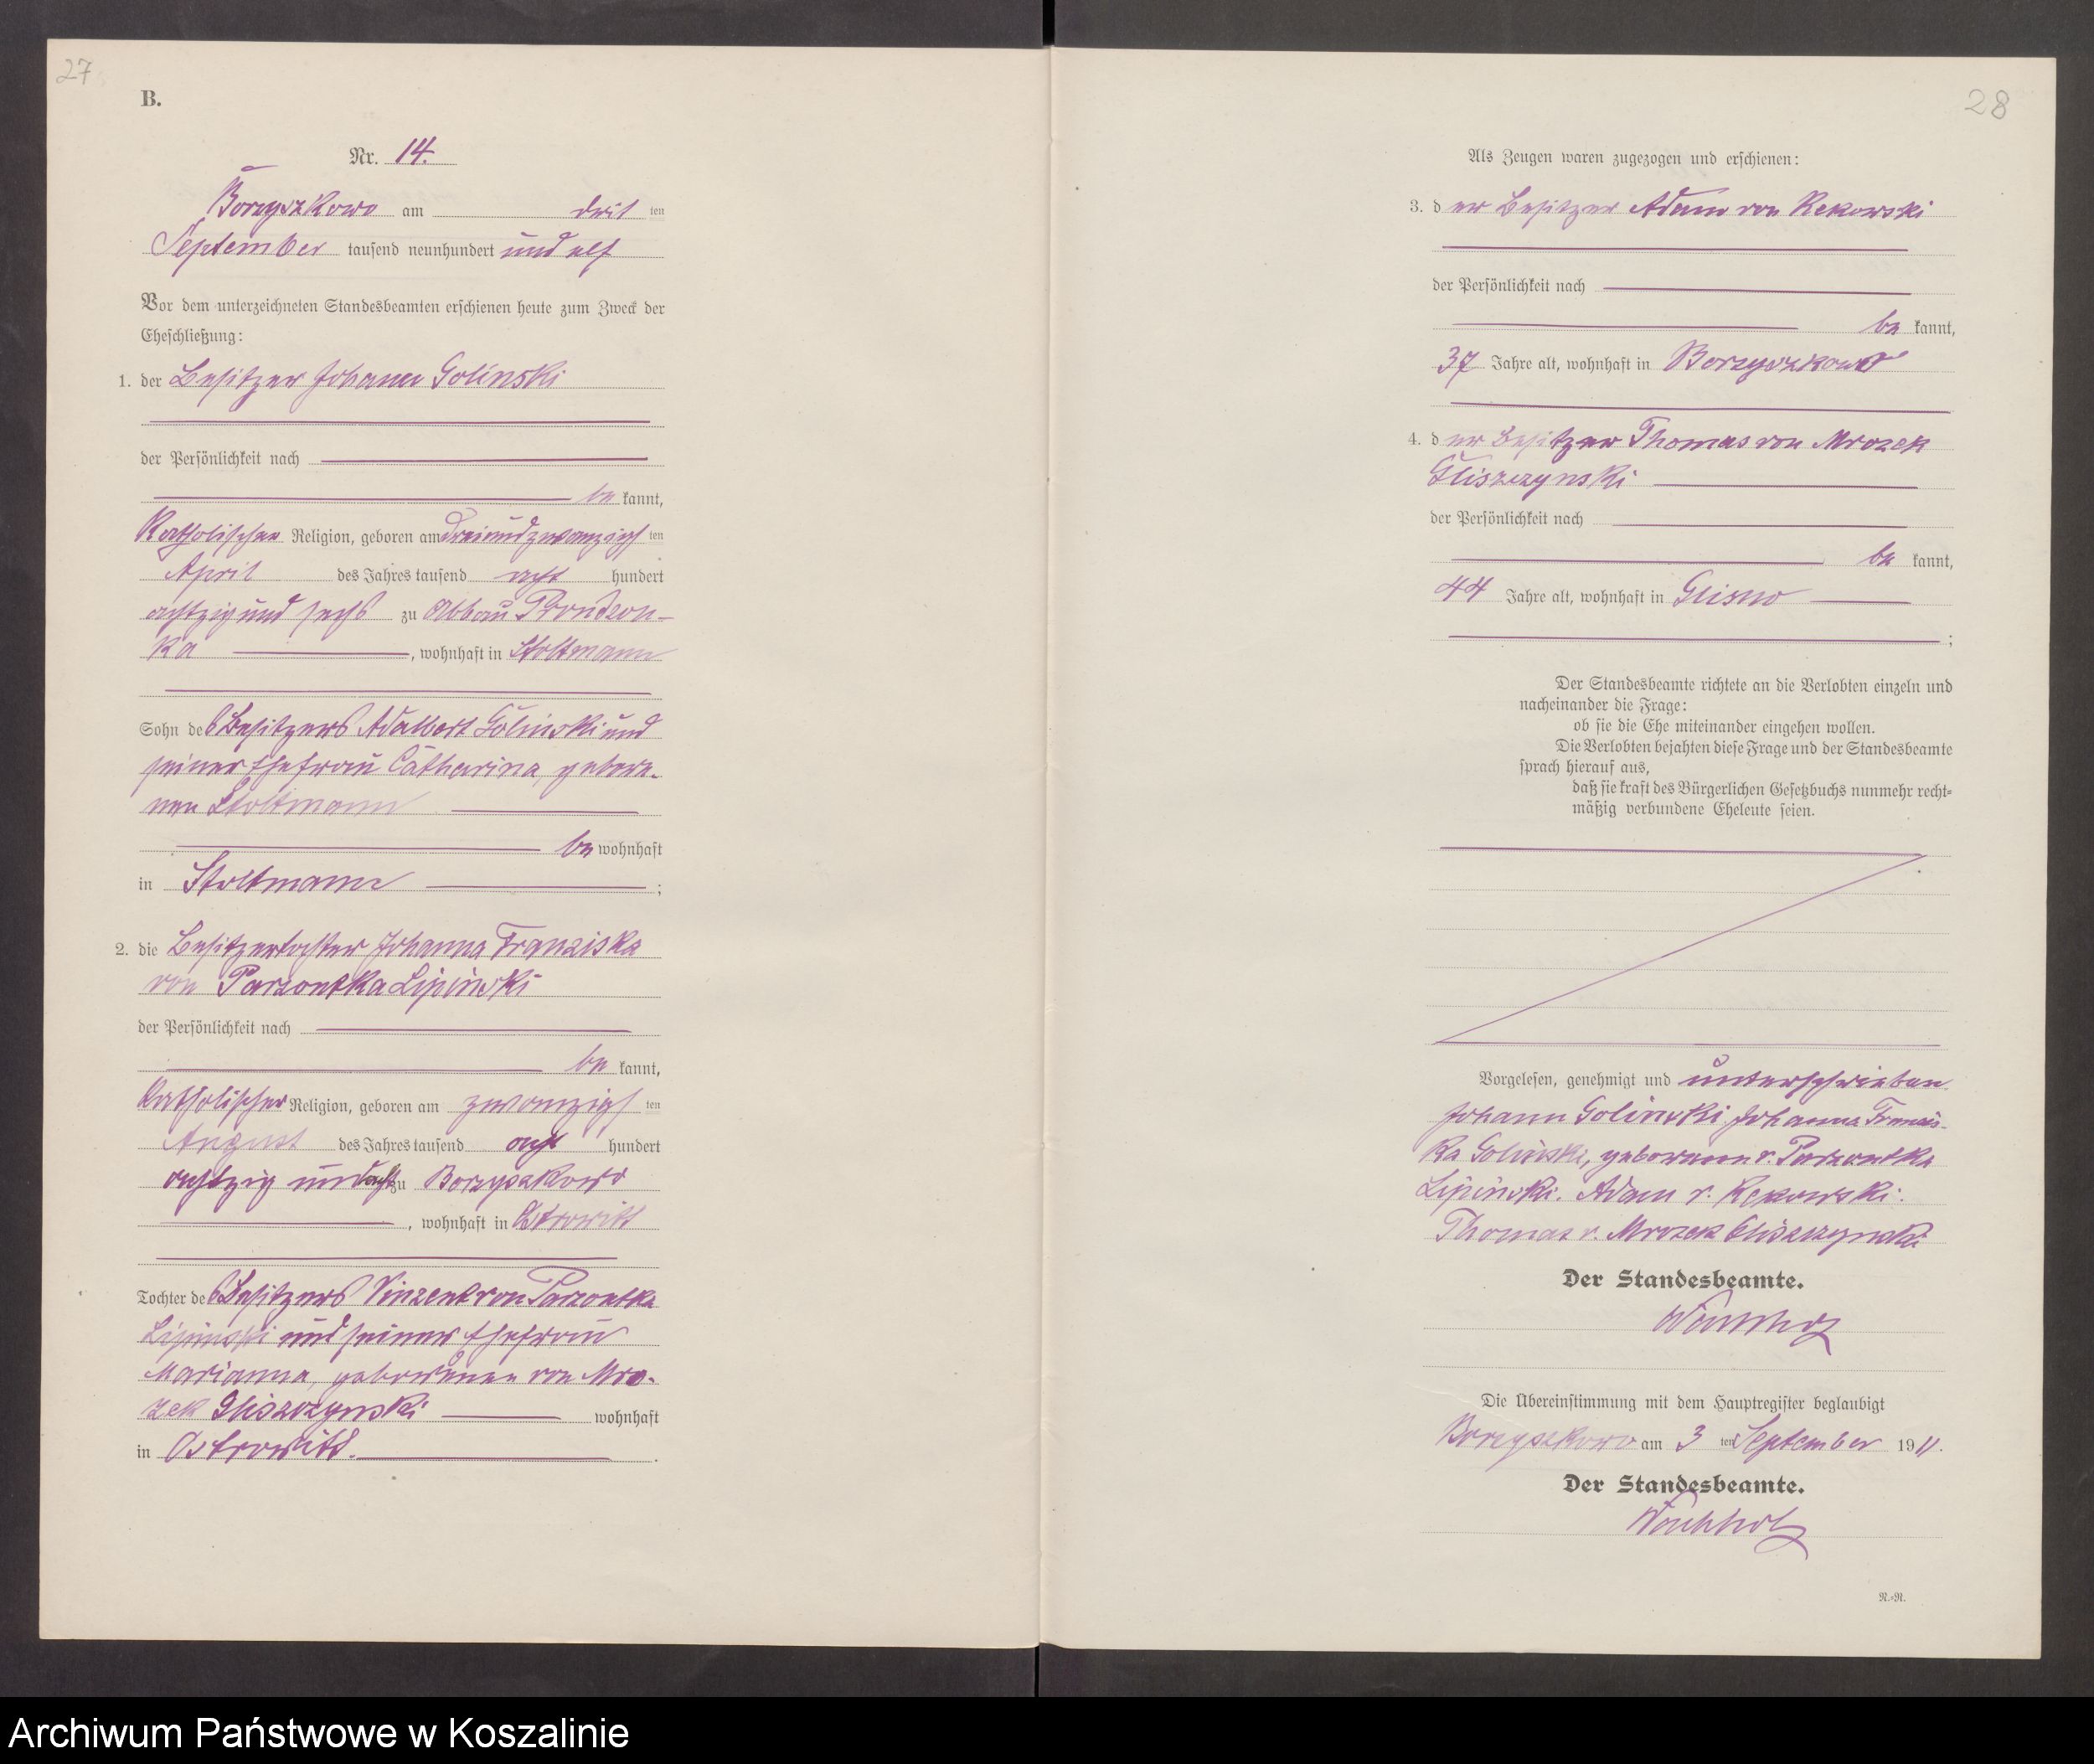 27
B.
Nr. 14.
Borzyszkowo am drit ten
September tausend neunhundert und elf
Vor dem unterzeichneten Standesbeamten erschienen heute zum Zweck der
Eheschließung:
1. der Besitzer Johann Golinski
der Persönlichkeit nach
be kannt,
katholischer Religion, geboren am dreiundzwanzigs ten
April des Jahres tausend acht hundert
achtzig und sechs zu Abbau Prondzon-
ka, wohnhaft in Stoltmann
Sohn des Besitzers Adalbert Golinski und
seiner Ehefrau Catharina, gebore-
nen Stoltmann
be wohnhaft
in Stoltmann ;
2. die Besitzertochter Johanna Franziska
von Parzontka Lipinski
der Persönlichkeit nach
be kannt,
katholischer Religion, geboren am zwanzigs ten
August des Jahres tausend acht hundert
achtzig und acht zu Borzyszkowo
, wohnhaft in Ostrowitt
Tochter des Besitzers Vinzent von Parzontka
Lipinski und seiner Ehefrau
Marianna, geborenen von Mro-
zek Gliszczynski wohnhaft
in Ostrowitt.
28
Als Zeugen waren zugezogen und erschienen:
3. der Besitzer Adam von Rekowski
der Persönlichkeit nach
be kannt,
37 Jahre alt, wohnhaft in Borzyszkowo
4. der Besitzer Thomas von Mrozek
Gliszczynski
der Persönlichkeit nach
be kannt,
44 Jahre alt, wohnhaft in Glisno
;
Der Standesbeamte richtete an die Verlobten einzeln und
nacheinander die Frage:
ob sie die Ehe miteinander eingehen wollen.
Die Verlobten bejahten diese Frage und der Standesbeamte
sprach hierauf aus,
daß sie kraft des Bürgerlichen Gesetzbuchs nunmehr recht-
mäßig verbundene Eheleute seien.
Vorgelesen, genehmigt und unterschrieben
Johann Golinski. Johanna Franzis-
ka Golinski, geborenen v. Parzontka
Lipinski. Adam v. Rekowski.
Thomas v. Mrozek Gliszczynski
Der Standesbeamte.
Die Übereinstimmung mit dem Hauptregister beglaubigt
Borzyszkowo am 3 ten September 1911.
Der Standesbeamte.
R.-R.
Archiwum Państwowe w Koszalinie